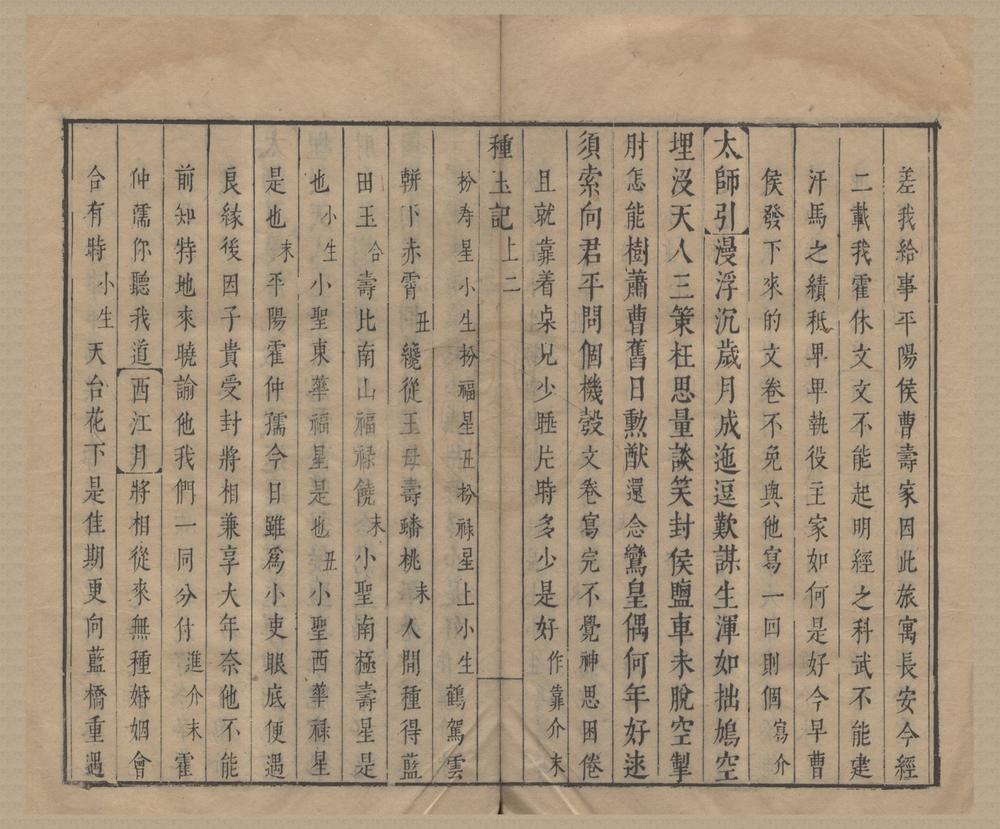 差我給事平陽侯曹壽家因此旅寓長安今經
二載我霍休文文不能起明經之科武不能建
汗馬之績秪早早執役主家如何是好今早曹
侯發下來的文卷不免與他寫一回則個寫介
太師引漫浮沉歲月成迤逗歎謀生渾如拙鳩空
埋沒天人三策枉思量談笑封侯鹽車未脫空掣
肘怎能樹蕭曹舊日勳猷還念鸞皇偶何年好逑
須索向君平問個機彀文卷寫完不覺神思困倦
且就靠着桌兒少睡片時多少是好作靠介末
種玉記上二
扮壽星小生扮福星丑扮祿星上小生鶴駕雲
軿下赤霄丑纔從王母壽蟠桃末人間種得藍
田玉合壽比南山福祿饒末小聖南極壽星是
也小生小聖東華福星是也丑小聖西華祿星
是也末平陽霍仲孺今日雖爲小吏眼底便遇
良緣後因子貴受封將相兼享大年奈他不能
前知特地來曉諭他我們一同分付進介末霍
仲孺你聽我道西江月將相從來無種婚姻會
合有時小生天台花下是佳期更向藍橋重遇